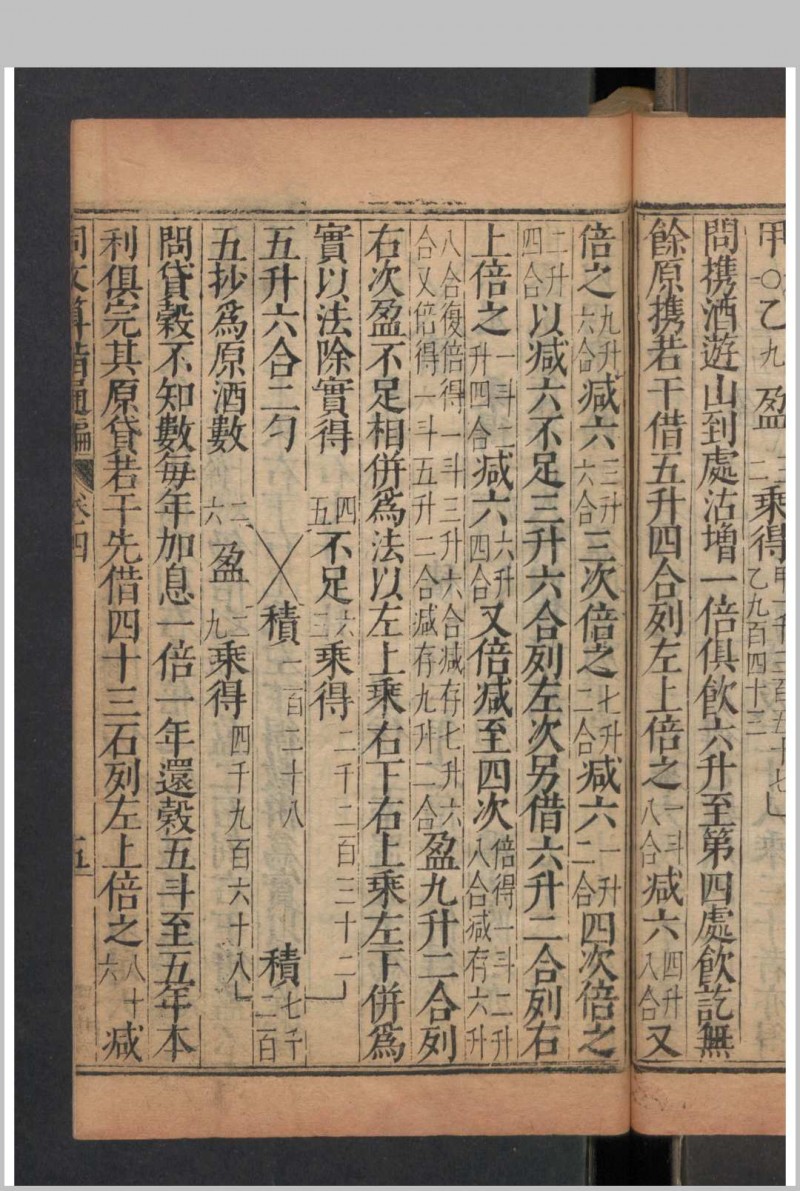 甲一〇乙九盈三二乘得甲一千三百五十七乙九百四十三
問携酒遊山到處沽增一倍俱飲六升至第四處飲訖無
餘原携若干借五升四合列左上倍之一斗八合减六四升八合又
倍之九升六合减六三升六合三次倍之七升二合减六一升二合四次倍之
二升四合以减六不足三升六合列左次另借六升二合列右
上倍之一斗二升四合减六六升四合又倍减至四次倍得一斗二升八合减存六升
八合復倍得一斗三升六合减存七升六合又倍得一斗五升二合减存九升二合盈九升二合列
右次盈不足相併爲法以左上乘右下右上乘左下併爲
實以法除實得 四五不足六三乘得二千二百三十二
五升六合二勺 積一百二十八 積七千二百
五抄爲原酒數 二六盈二九乘得四千九百六十八
問貸穀不知數每年加息一倍一年還穀五斗至五年本
利俱完其原貸若干先借四十三石列左上倍之八十六减
同文算指通編 卷四 五